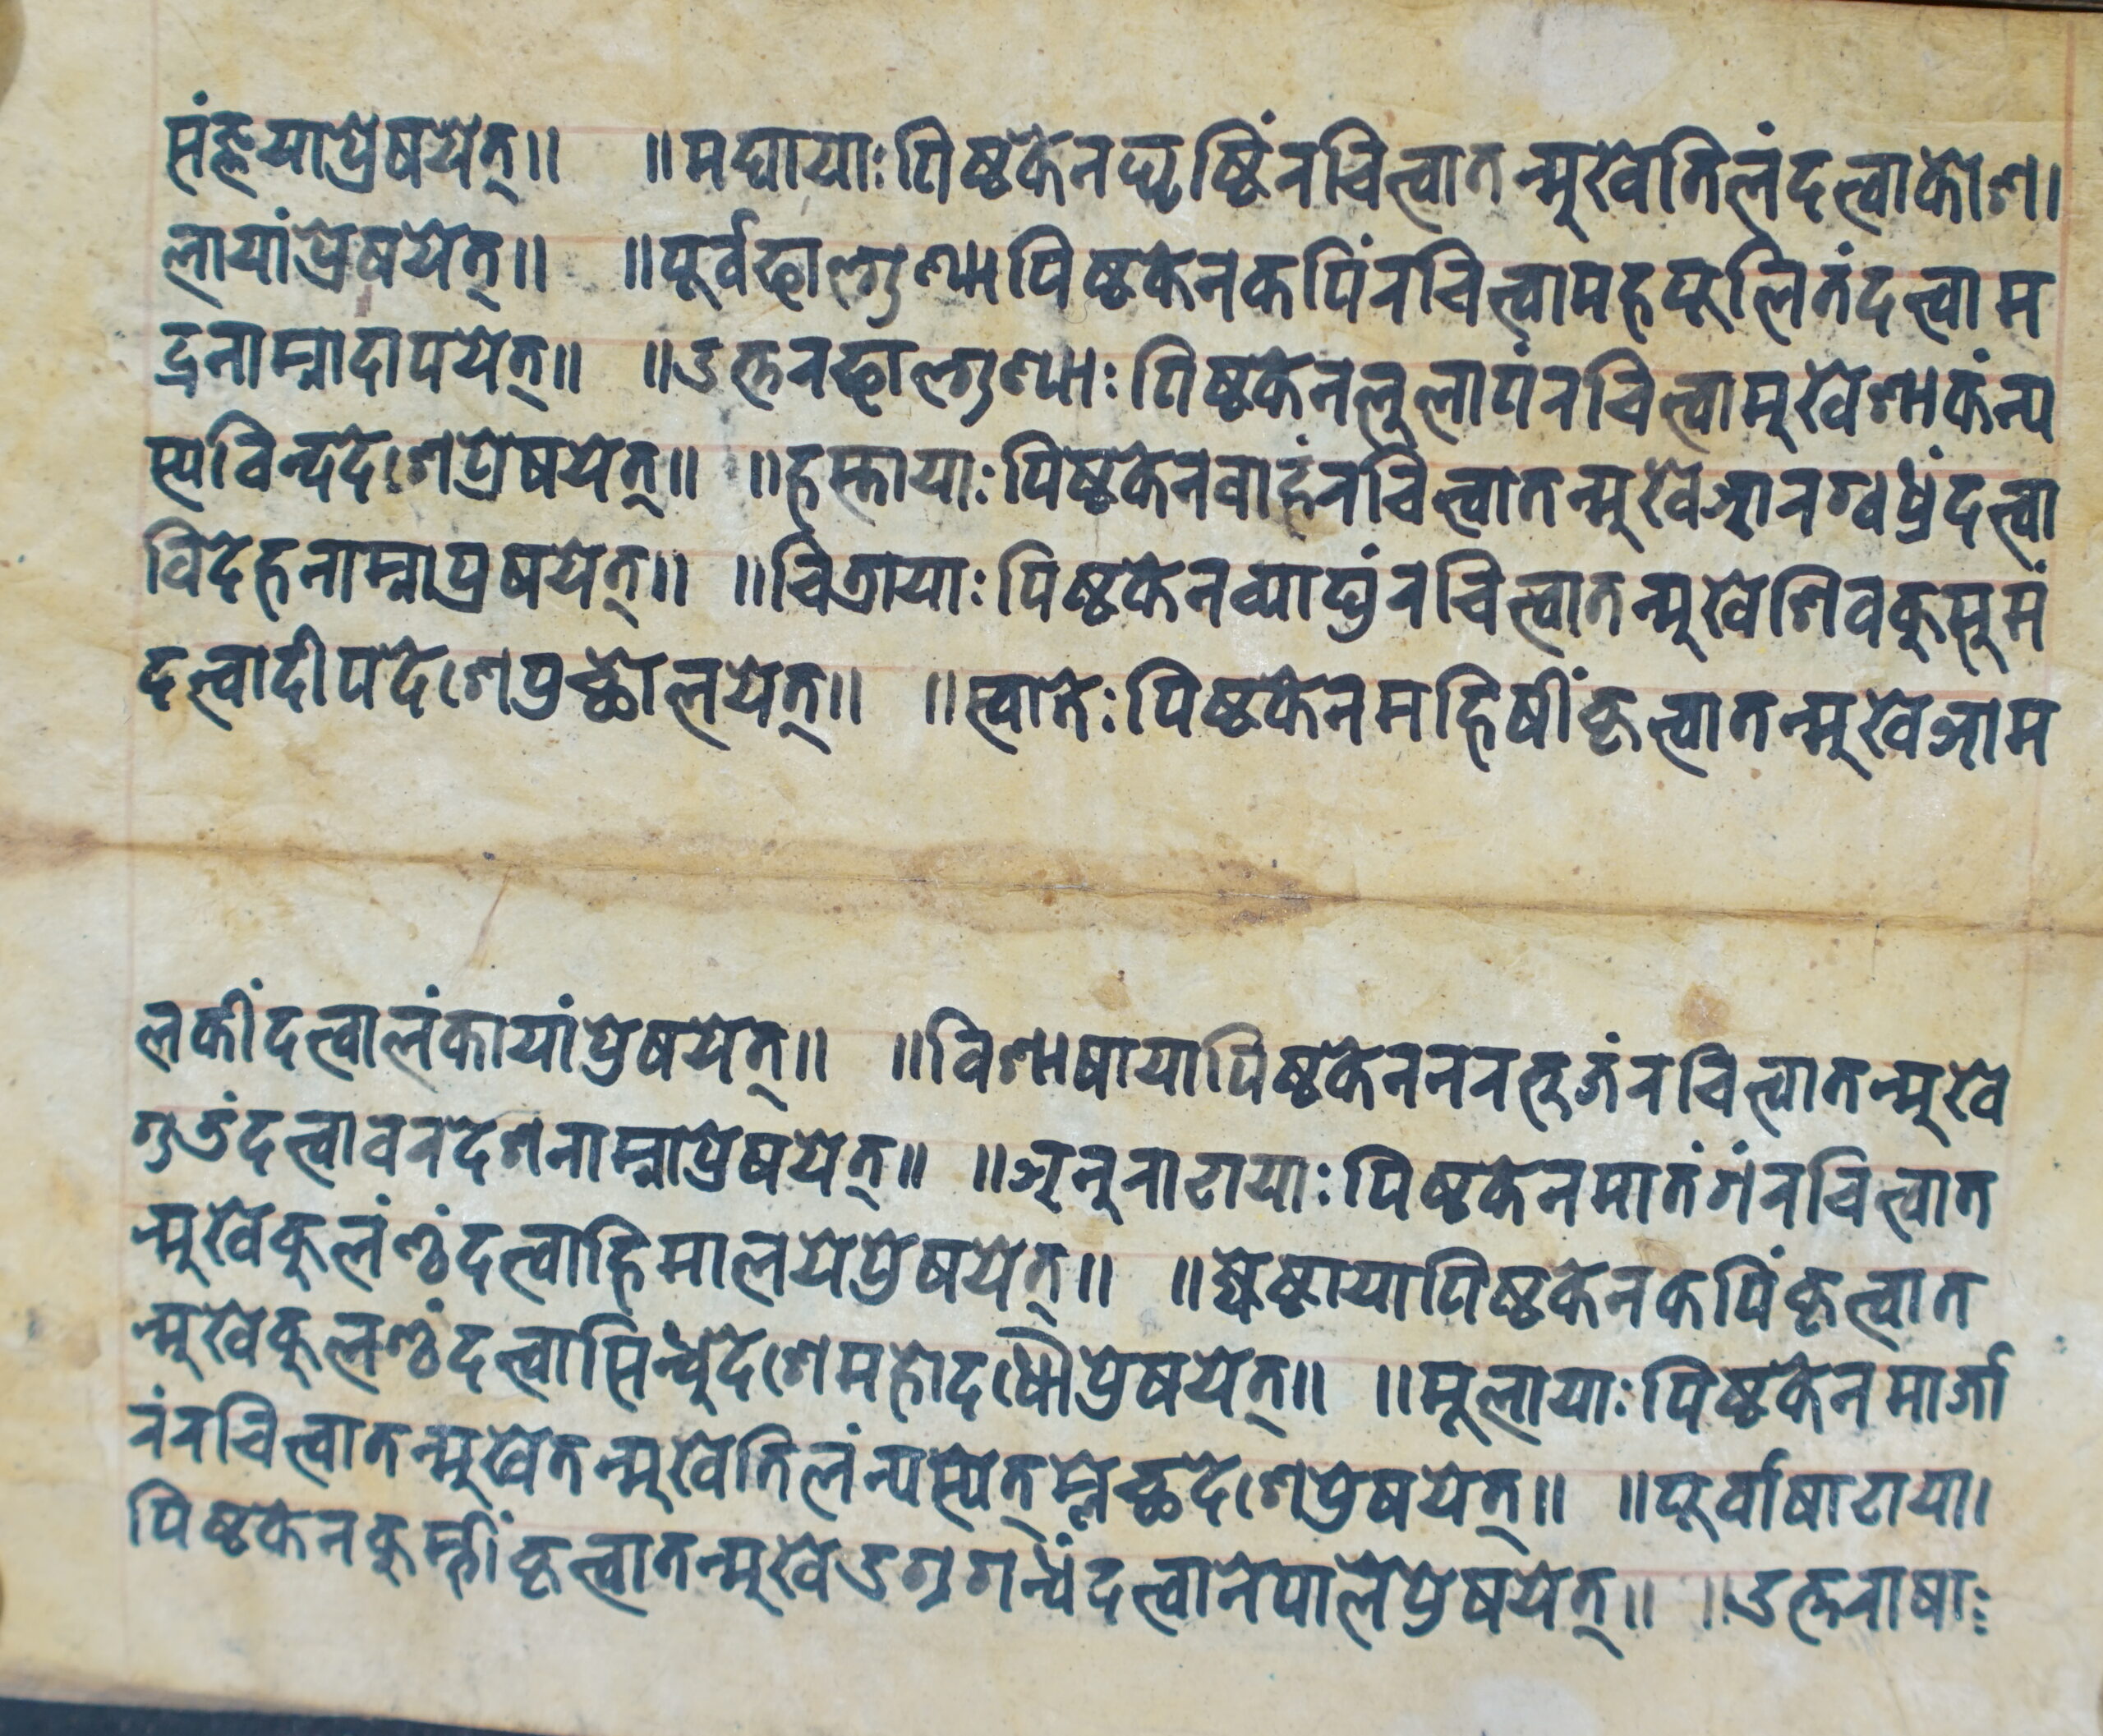 संज्ञयाप्रेषयेत्॥ ॥मघायाःपिष्टकेनघृष्टिंरचित्वातन्मुखेतिलंदत्वाकोश।
लायांप्रेषयेत्॥ ॥पूर्वफाल्गुण्यापिष्टकेनकपिंरचित्वामहपूलितंदत्वाम
द्रनाम्नादापयेत्॥ ॥उत्तरफाल्गुण्याःपिष्टकेनलुलापंरचित्वामुखेशाकंन्य
स्यविन्ददेशेप्रेषयेत्॥ ॥हस्तायाःपिष्टकेनवाहंरचित्वातन्मुखेआरग्वध्रंदत्वा
विदेहनाम्नाप्रषयेत्॥ ॥चित्रायाःपिष्टकेनव्याघ्रंरचित्वातन्मुखेशिवकुसुमं
दत्वादीपदेशेप्रच्छोलयेत्॥ ॥स्वातेःपिष्टकेनमहिषींकृत्वातन्मुखेआम
लकींदत्वालंकायांप्रेषयेत्॥ ॥विशाषायापिष्टकेननरत्तुजंरचित्वातन्मुखे
गुडंदत्वावरदेशनाम्नाप्रेषयेत्॥ ॥अनुराढायाःपिष्टकेनमातंगंरचित्वात
न्मुखेकुलंण्ठंदत्वाहिमालयेप्रेषयेत्॥ ॥ज्येष्टायापिष्टकेनकपिंकृत्वात
न्मुखेकुलण्ठंदत्वासिन्धुदेशेमहोदधौप्रेषयेत्॥ ॥मूलायाःपिष्टकेनमार्जा
रंरचित्वातन्मुखेतन्मुखेतिलंन्यस्येत्म्लेच्छदेशेप्रेषयेत्॥ ॥पूर्वाषाढाया।
पिष्टकेनकुम्भींकृत्वातन्मुखेउग्रगन्धंदत्वानेपालेप्रेषयेत्॥ ॥उत्तराषाः